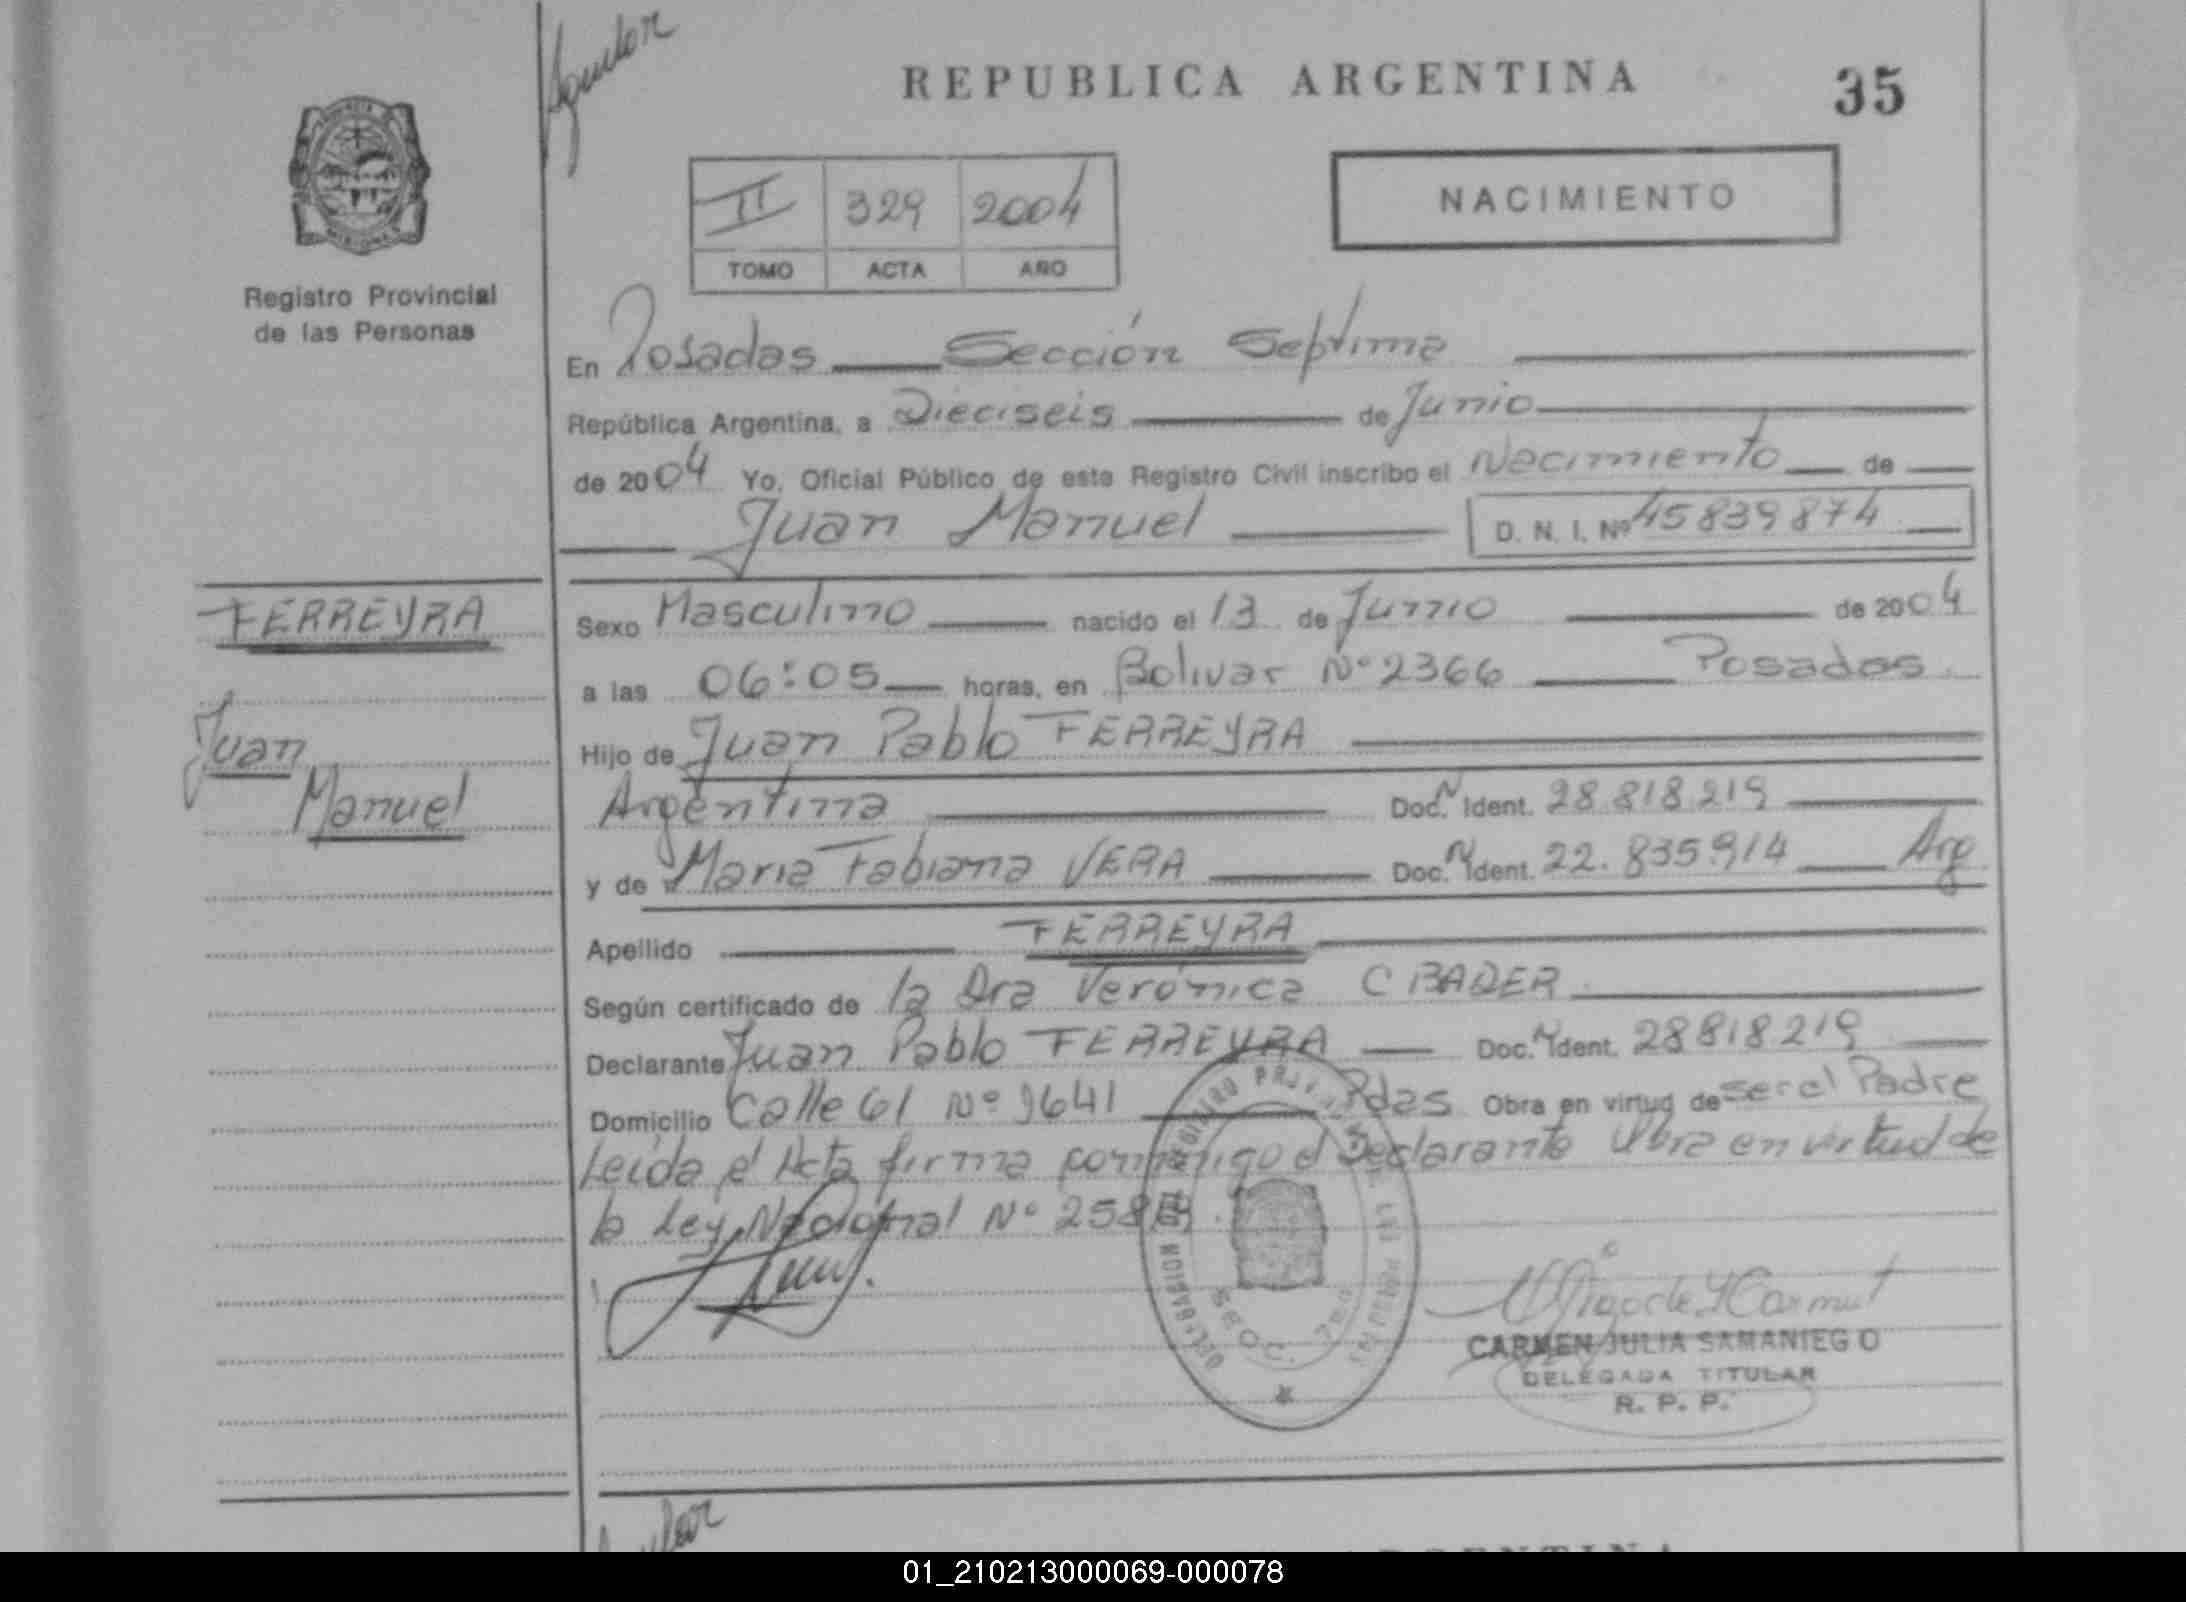 Aguilar
REPUBLICA ARGENTINA
35
II 329 2004
TOMO ACTA AÑO
NACIMIENTO
Registro Provincial
de las Personas
En Posadas Sección Septima
República Argentina, a Dieciseis de Junio
de 2004 Yo, Oficial Público de este Registro Civil inscribo el Nacimiento de
Juan Manuel D. N. I. Nº 45839874
FERREYRA
Juan
Manuel
Sexo Masculino nacido el 13 de Junio de 2004
a las 06:05 horas, en Bolivar Nº 2366 Posadas
Hijo de Juan Pablo FERREYRA
Argentina Doc. N Ident. 28.818.219
y de Maria Fabiana VERA Doc. N Ident. 22.835.914 Arg
Apellido FERREYRA
Según certificado de la Dra Verónica C BADER
Declarante Juan Pablo FERREYRA Doc. N Ident. 28818219
Domicilio Calle 61 Nº 9641 Pdas Obra en virtud de ser el Padre
Leída el Acta firma conmigo el Declarante Obra en virtud de
la Ley Nacional Nº
REGISTRO PROVINCIAL DE LAS PERSONAS
DELEGACION
SECC. 7ma
CARMEN JULIA SAMANIEGO
DELEGADA TITULAR
R. P. P.
ARGENTINA
01_210213000069-000078